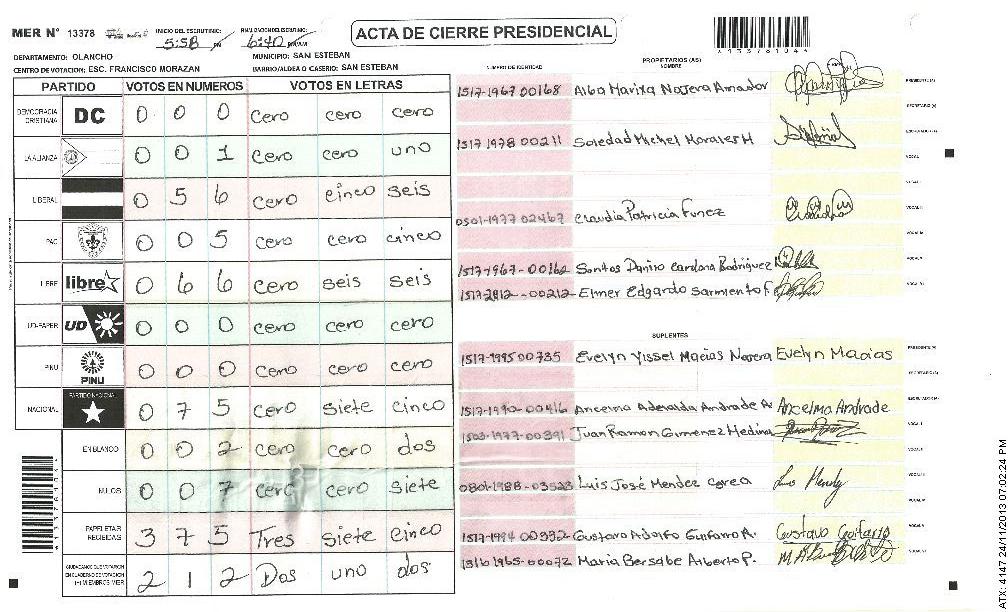 MER N° 13378 INICIO DEL ESCRUTINIO: 5:58 PM 6:40 PM/AM
ACTA DE CIERRE PRESIDENCIAL
DEPARTAMENTO: OLANCHO MUNICIPIO: SAN ESTEBAN
CENTRO DE VOTACION: ESC. FRANCISCO MORAZAN BARRIO/ALDEA O CASERIO: SAN ESTEBAN
PARTIDO VOTOS EN NUMEROS VOTOS EN LETRAS
DEMOCRACIA CRISTIANA DC 0 0 0 cero cero cero
LA ALIANZA 0 0 1 cero cero uno
LIBERAL 0 5 6 cero cinco seis
PAC 0 0 5 cero cero cinco
LIBRE libre 0 6 6 cero seis seis
UD-FAPER UD 0 0 0 cero cero cero
PINU PINU 0 0 0 cero cero cero
NACIONAL PARTIDO NACIONAL 0 7 5 cero siete cinco
EN BLANCO 0 0 2 cero cero dos
NULOS 0 0 7 cero cero siete
PAPELETAS RECIBIDAS 3 7 5 Tres siete cinco
2 1 2 Dos uno dos
NUMERO DE IDENTIDAD PROPIETARIOS (AS) NOMBRE
1517-1967 00168 Alba Marixa Najera Amador
1517 1978 00211 Soledad Michel Morales H
0501-1977 02467 Claudia Patricia Funez
1517-1967-00162 Santos Danilo Cardona Rodriguez
Elmer Edgardo Sarmiento F.
SUPLENTES
1517-1995 00735 Evelyn Yissel Macias Najera Evelyn Macias
Ancelma Adevalda Andrade A. Ancelma Andrade
1503-1977-00391 Juan Ramon Gimenez Medina
0801-1988-03523 Luis José Mendez corea
1517-1994 00332 Gustavo Adolfo Guifarro A. Gustavo Guifarro
1516 1965-00072 Maria Bersabe Alberto P.
ATX: 4147 24/11/2013 07:02:24 PM